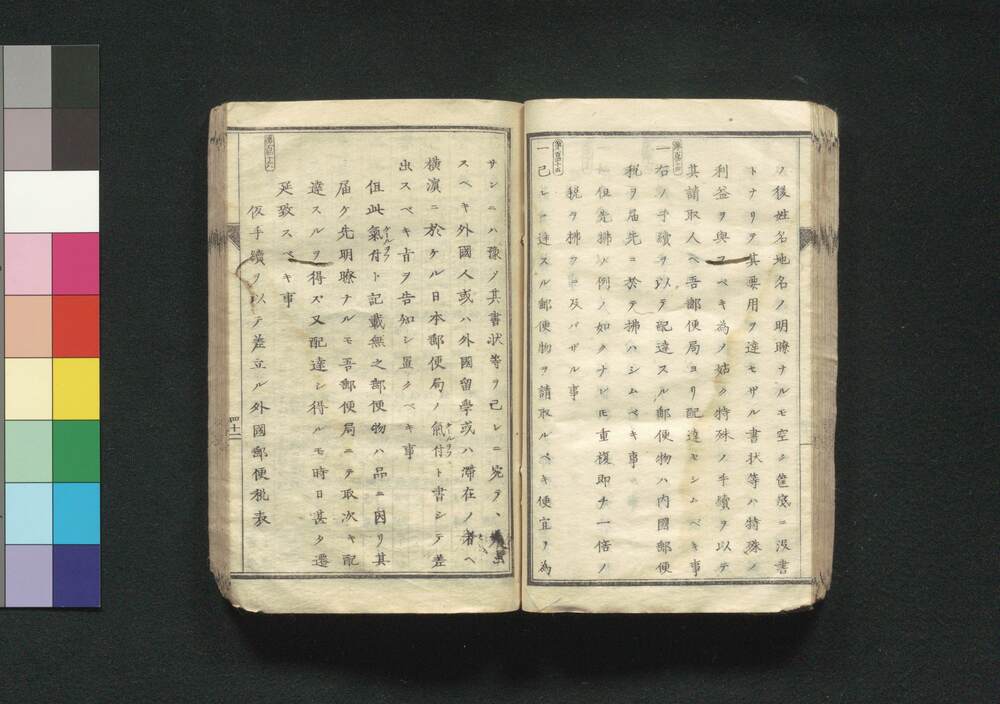 ノ後姓名地名ノ明瞭ナルモ空シク筐底ニ沒書
トナリテ其要用ヲ達セザル書状等ハ特殊ノ
利益ヲ與フベキ為ノ姑ク特殊ノ手續ヲ以テ
其請取人ヘ吾郵便局ヨリ配達セシムベキ事
一右ノ手續ヲ以テ配達スル郵便物ハ内國郵便
税ヲ届先ニ於テ拂ハシムベキ事
但先拂ノ例ノ如クナレ𪜈重複即チ一倍ノ
税ヲ拂フニ及バザル事
一己レニ達スル郵便物ヲ請取ルベキ便宜ヲ為
サンニハ豫メ其書状等ヲ己レニ宛テ、
スヘキ外國人或ハ外國留學或ハ滞在ノ者ヘ
横濱ニ於ケル日本郵便局ノ氣付ト書シテ差
出スベキ旨ヲ告知シ置クベキ事
但此氣付ト記載無之郵便物ハ品ニ因リ其
届ケ先明瞭ナルモ吾郵便局ニテ取次キ配
達スルヲ得ズ又配達シ得ルモ時日甚タ遷
延致スベキ事
仮手續ヲ以テ差立ル外國郵便税表
四十二